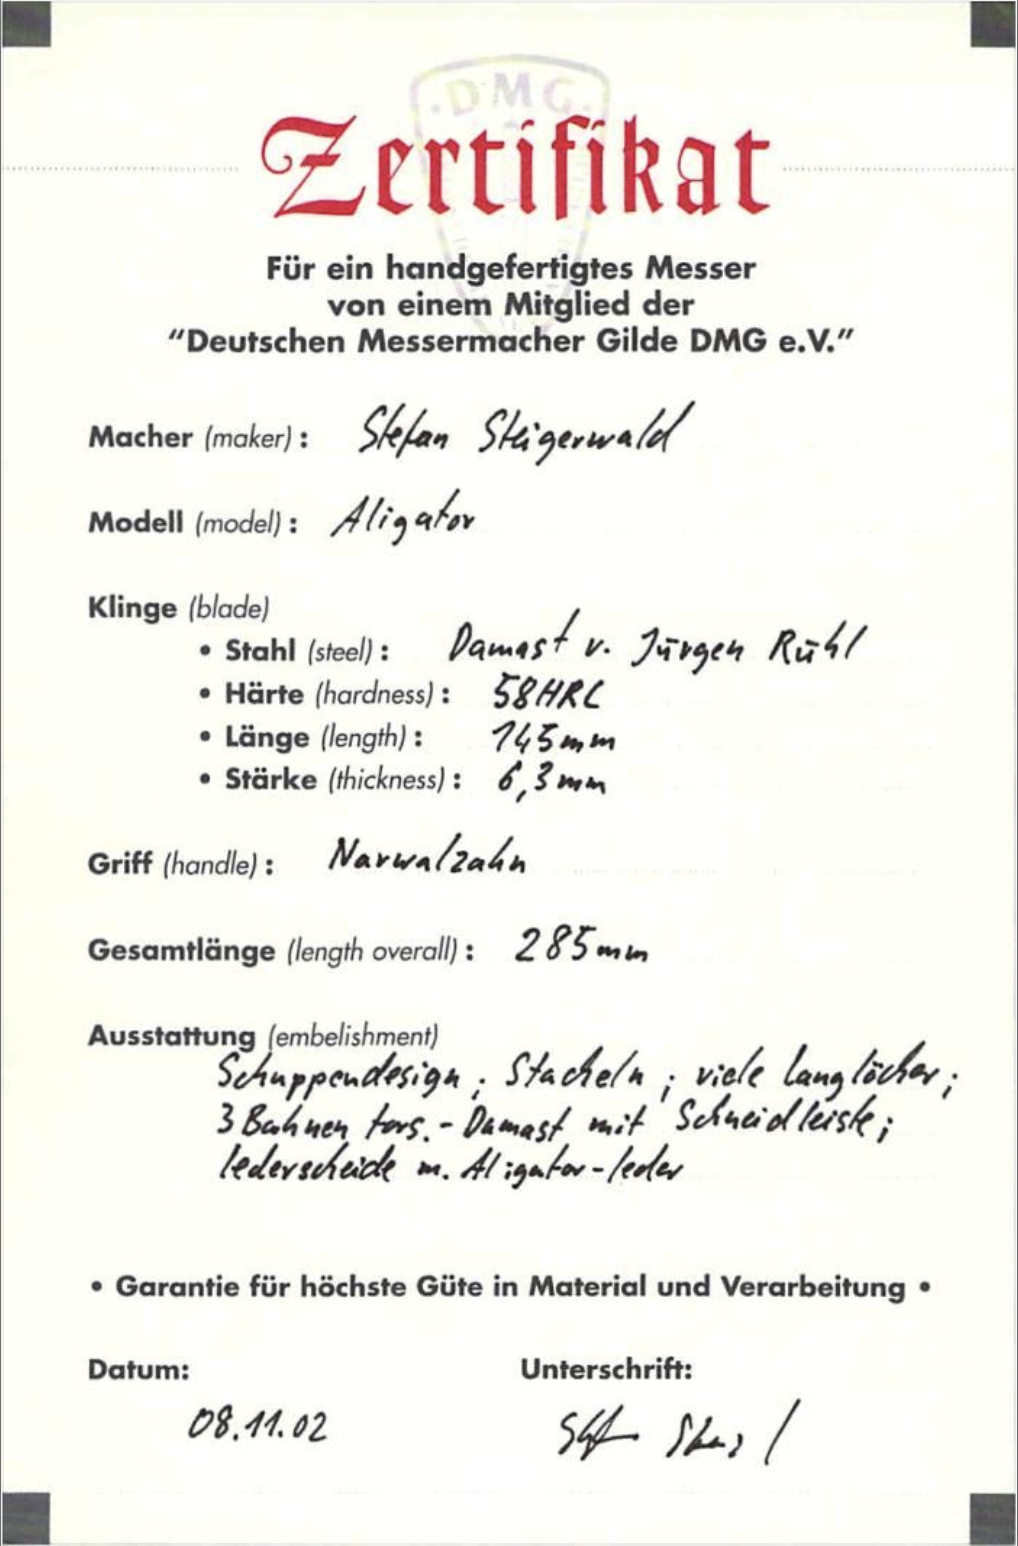 DMG
Zertifikat
Für ein handgefertigtes Messer
von einem Mitglied der
"Deutschen Messermacher Gilde DMG e.V."
Macher (maker) : Stefan Steigerwald
Modell (model) : Aligator
Klinge (blade)
• Stahl (steel) : Damast v. Jürgen Rühl
• Härte (hardness) : 58HRC
• Länge (length) : 145mm
• Stärke (thickness) : 6,3mm
Griff (handle) : Narwalzahn
Gesamtlänge (length overall) : 285mm
Ausstattung (embelishment)
Schuppendesign ; Stacheln ; viele Langlöcher ;
3 Bahnen tors.- Damast mit Schneidleiste ;
Lederscheide m. Aligator-leder
• Garantie für höchste Güte in Material und Verarbeitung •
Datum: Unterschrift:
08.11.02